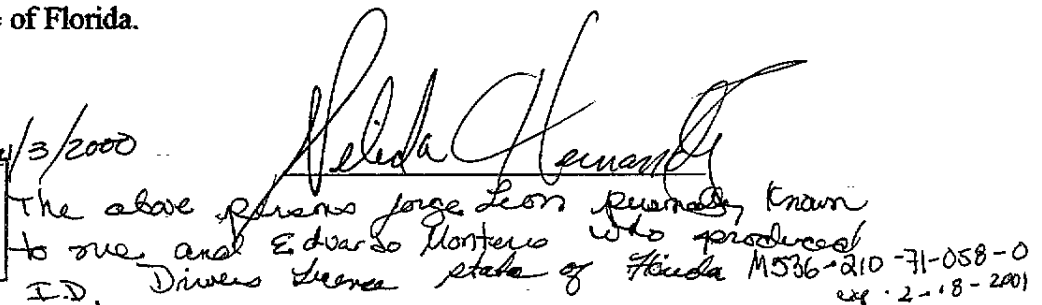 of Florida.
/3/2000 Nelida Hernandez
The above persons Jorge Leon personally known
to me and Eduardo Montero who produced
I.D. Drivers License state of Florida M536-210-71-058-0
exp. 2-18-2001